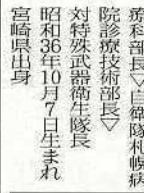 療科部長▽自衛隊札幌病
院診療技術部長▽
対特殊武器衛生隊長
昭和36年10月7日生まれ
宮崎県出身